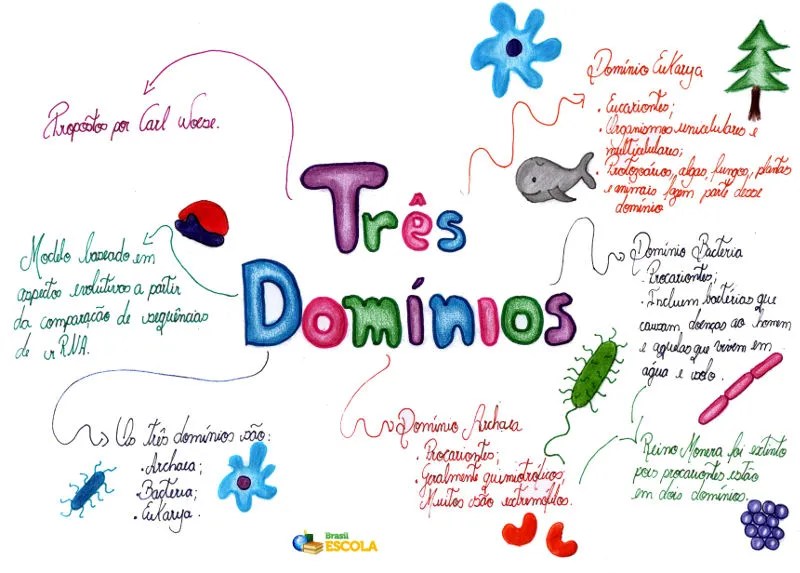 Três
Domínios
Propostos por Carl Woese.
Modelo baseado em
aspectos evolutivos a partir
da comparação de sequências
de rRNA.
Os três domínios são:
. Archaea;
. Bacteria;
. Eukarya.
Domínio Eukarya
. Eucariontes;
. Organismos unicelulares e
multicelulares;
. Protozoários, algas, fungos, plantas
e animais fazem parte desse
domínio
Domínio Bacteria
. Procariontes;
. Incluem bactérias que
causam doenças ao homem
e aquelas que vivem em
água e solo.
Domínio Archaea
. Procariontes;
. Geralmente quimiotróficos;
. Muitos são extremófilos.
Reino Monera foi extinto
pois procariontes estão
em dois domínios.
Brasil
ESCOLA